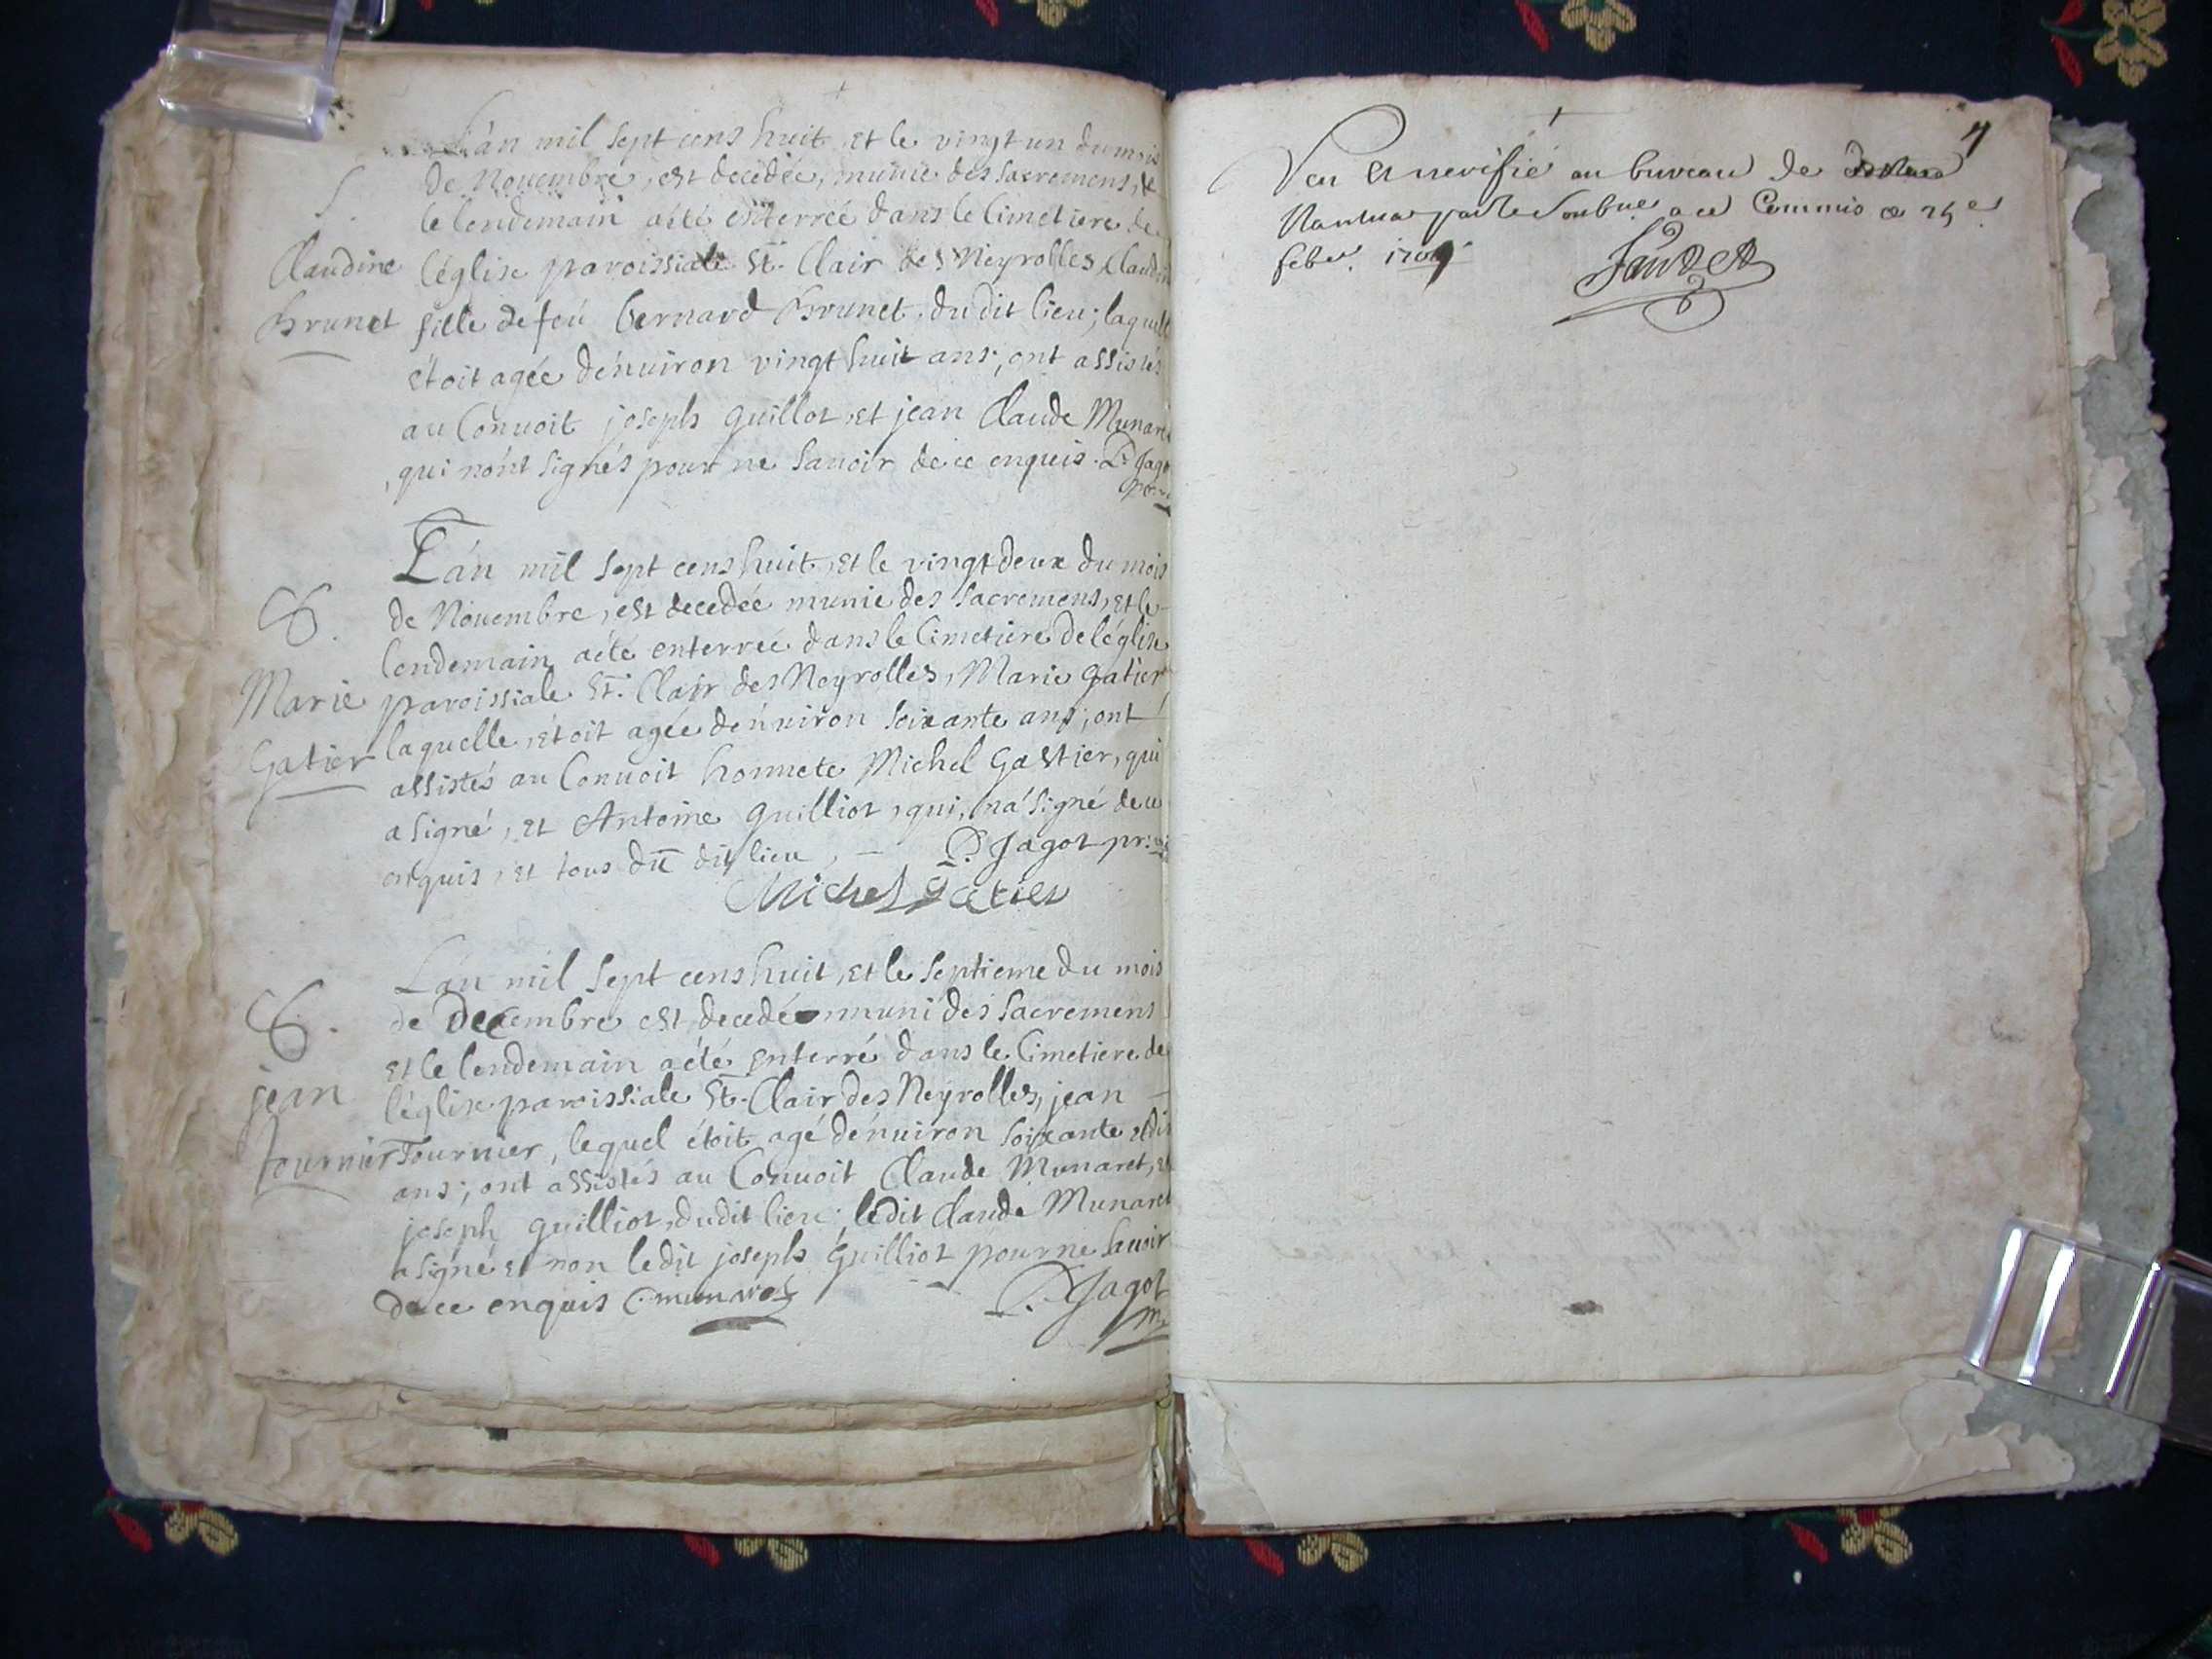 Lán mil sept cens huit, et le vingt un du mois
de Nouembre, est decedée, munie des sacremens, &
le lendemain aété enterreé dans le Cimetiere de
Claudine
léglise paroissiale St. Clair des Neyrolles Claudin
Brunet
fille de feú bernard Brunet, dudit lieu; laquell
étoit agée dénuiron vingt huit ans; ont assistés
au Conuoit joseph guillot, et jean Claude Munar
qui nónt signés pour ne sauoir de ce enquis. P. Jago
Lán mil sept cens huit, et le vingt deux du mois
S.
de Nouembre, est decedée munie des sacremens, et le
lendemain aété enterreé dans le Cimetiere de léglise
Marie
paroissiale St. Clair des Neyrolles, Marie gatier
Gatier
laquelle, étoit agée dénuiron soixante ans; ont
assistés au Conuoit honnete Michel Gastier, qui
a signé, et Antoine guilliot, qui, ná signé de ce
enquis, et tous du dit lieu, — P. Jagot
Michel Gatier
Lán mil sept cens huit, et le septieme du mois
S.
de Decembre est decedé muni des sacremens
et le lendemain aété enterré dans le Cimetiere de
jean
léglise paroissiale St. Clair des Neyrolles, jean —
fournier
Fournier, lequel étoit agé dénuiron soixante et dix
ans; ont assistés au Conuoit Claude Munaret, et
joseph guilliot, dudit lieu; ledit Claude Munaret
a signé et non ledit joseph Guilliot pour ne sauoir
de ce enquis C. munaret P. Jagot
Veu et verifié au bureau de
Nantua par le ce Commis ce
feb. 1709